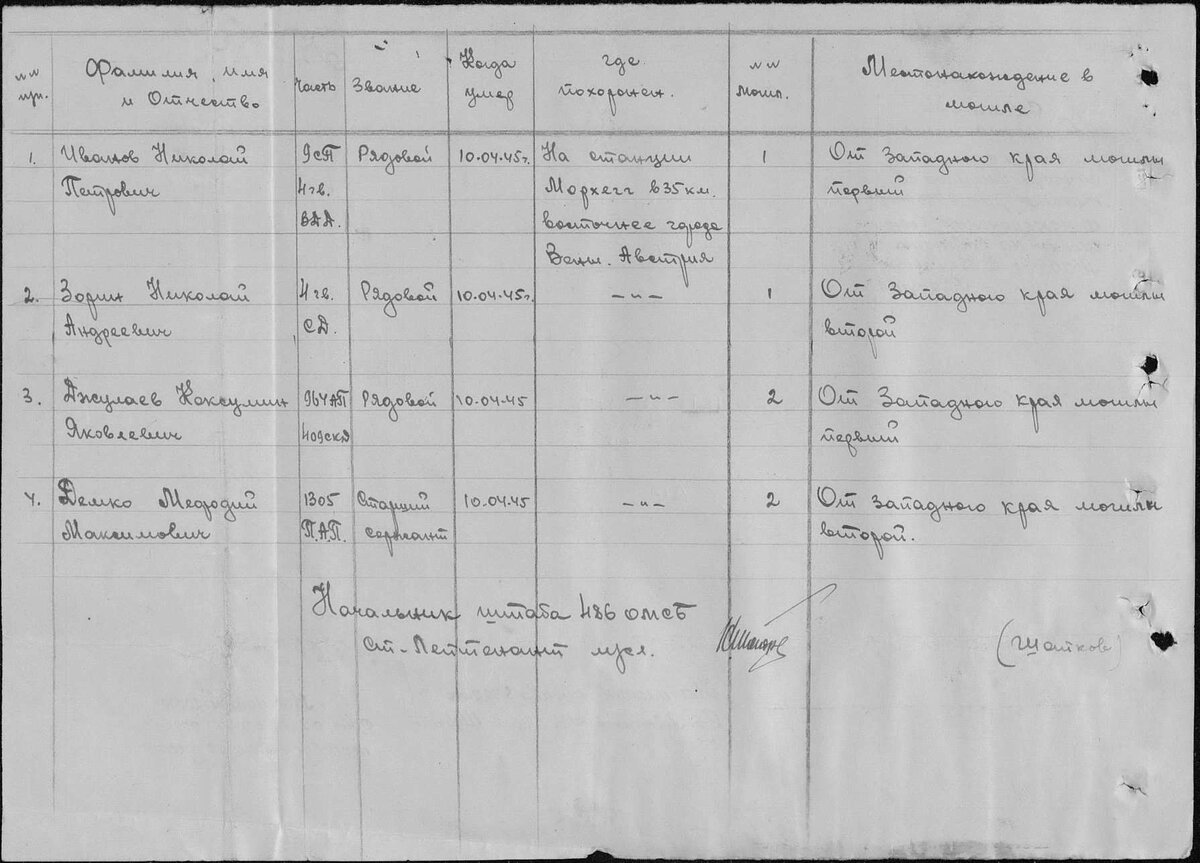 №№ пр. Фамилия, имя и Отчество Часть Звание Когда умер где похоронен. №№ могил. Местонахождение в могиле
1. Иванов Николай 9сп Рядовой 10.04.45г. На станции 1 От Западного края могилы
Петрович 4гв. Морхегг в 35 км. первый
ВДД. восточнее города
Вены. Австрия
2. Зорин Николай 4гв. Рядовой 10.04.45г. —"— 1 От Западного края могилы
Андреевич СД. второй
3. Джулаев Коксумин 964АП Рядовой 10.04.45 —"— 2 От Западного края могилы
Яковлевич 409скд первый
4. Демко Мефодий 1305 Старший 10.04.45 —"— 2 От Западного края могилы
Максимович П.А.П. сержант второй.
Начальник штаба 486 ОМСБ
Ст-Лейтенант м/сл. (Шайков)